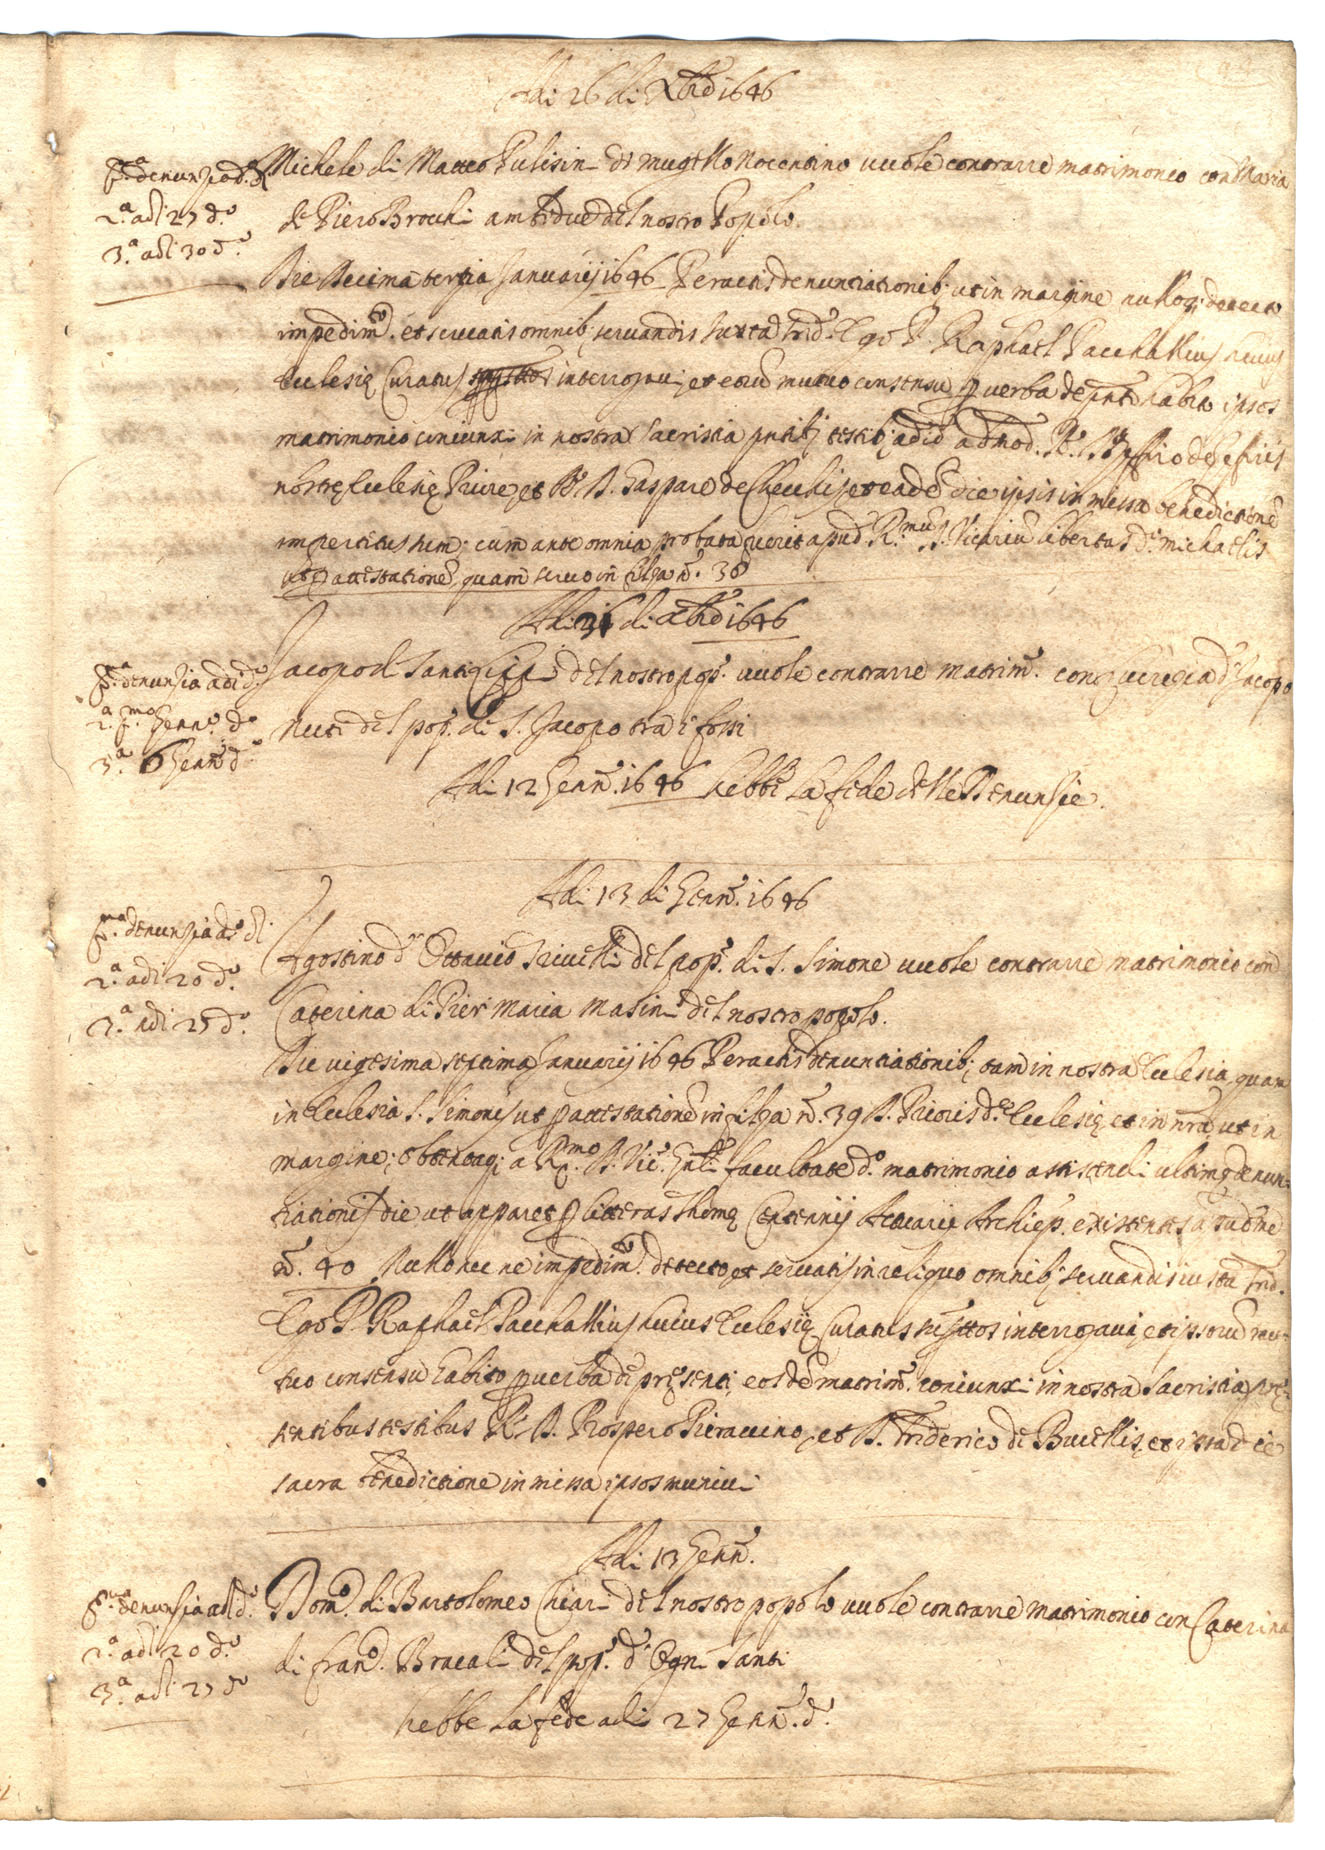 Adi 26 di Xbre 1646
Pa. denunzia d. d.
2.a adi 27 do.
3.a adi 30 do.
Michele di Matteo Pulisini di Mugello Nocentino vuole contrarre matrimonio con Maria
di Piero Brochi ambidue del nostro Popolo.
Die Decima tertia Januarij 1646 Peractis denuntiationib; ut in margine nulloq; detecto
impedimo. et servatis omnib; servandis iuxta Trid. Ego P. Raphael Pacchallius huius
Ecclesię Curatus interrogavi et eorū mutuo consensu p verba de pnti habito ipsos
matrimonio coniunxi in nostra sacristia pntib; testib; ad id admod. R.
nostrę Ecclesię Priore, et R. D. Gaspare de Checchis et eadē die ipsis in missa benedictionē
impertitus sum; cum ante omnia probata fuerit apud R.mū D. Vicariū libertas di. michaelis
ut p attestationē, quam servo in filza no. 38
Adi 31 di Xbre 1646
Pa. denunzia adi do.
2.a p.mo Genno. do
3.a 6 Genno. do
Jacopo di Santi del nostro popo. vuole contrarre matrimo. con Lucrezia di Jacopo
Nuti del popo. di S. Jacopo tra i fossi
Adi 12 Genno. 1646 hebbe la fede delle Denunzie.
Adi 13 di Genno. 1646
P.ma denunzia do. di
2.a adi 20 do.
3.a adi 27 do.
Agostino di Ottavio Scivelli del popo. di S. Simone vuole contrarre matrimonio con
Caterina di Pier Maria Masini del nostro popolo.
Die vigesima septima Januarij 1646 Peractis denuntiationib; tam in nostra Ecclesia, quam
in Ecclesia S. Simonis ut p attestationē in filza no. 39 D. Prioris de. Ecclesię et in nra, ut in
margine; obtentaq; a R.mo D. Vic. Gnli facultate do. matrimonio assistendi ultimę denun=
tiationis die, ut apparet p litteras Thomę Centennij Actuarij Archiep. existentes
no. 40 Nulloque ne impedimo. detecto, et servatis in reliquo omnib; servandis iuxta Trid.
Ego P. Raphael Pacchallius huius Ecclesię Curatus interrogavi, et ipsorū mu=
tuo consensu habito p verba de pręsenti, eosdē matrimo. coniunxi in nostra sacristia prę=
sentibus testibus R. D. Prospero Pieraccino, et D. Friderico de Bucellis, et ipsa die
sacra benedictione in missa ipsos munivi
Adi 13 Genno.
P.ma denunzia adi do.
2.a adi 20 do.
3.a adi 27 do
Domo. di Bartolomeo Chiari del nostro popolo vuole contrarre matrimonio con Caterina
di Frano. Bracali del popo. d'Ogni Santi
hebbe la fede adi 27 Genno. do.